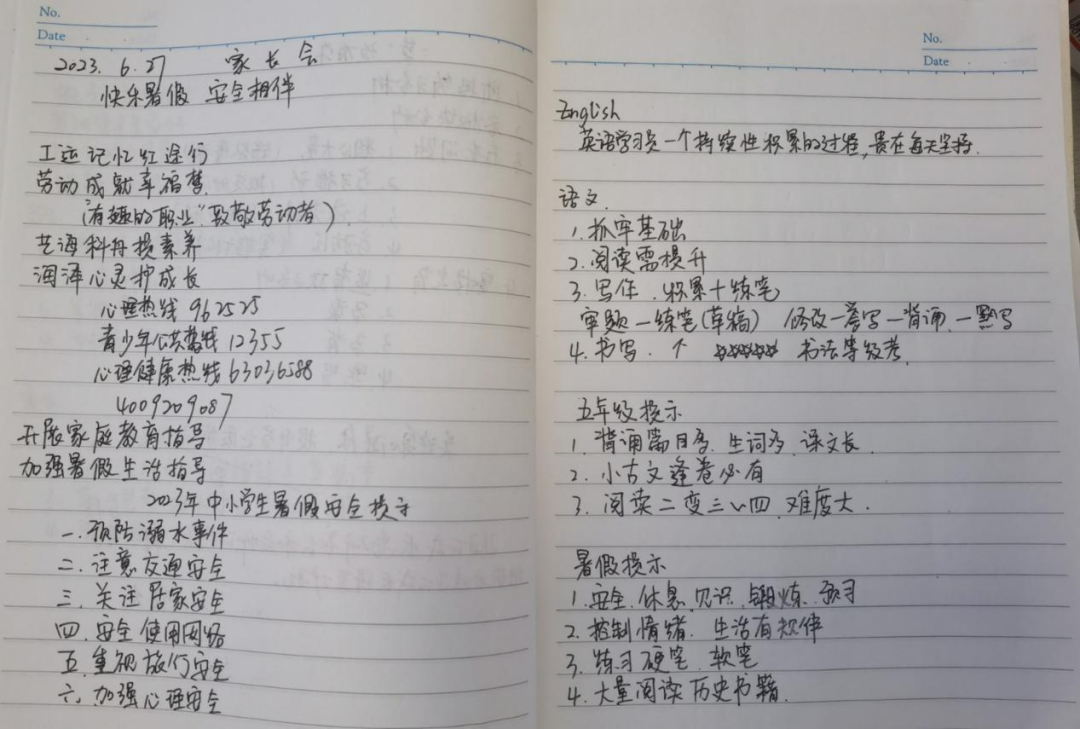 No.
Date
2023. 6.27 家长会
快乐暑假 安全相伴
工运记忆红途行
劳动成就幸福梦
(有趣的职业"致敬劳动者)
艺海科舟提素养
润泽心灵护成长
心理热线 962525
青少年公共热线 12355
心理健康热线 63036588
4009209087
开展家庭教育指导
加强暑假生活指导
2023年中小学生暑假安全提示
一.预防溺水事件
二.注意交通安全
三.关注居家安全
四.安全使用网络
五.重视旅行安全
六.加强心理安全
No.
Date
English
英语学习是一个持续性积累的过程,贵在每天坚持.
语文.
1.抓牢基础
2.阅读需提升
3.写作.积累+练笔
审题—练笔(草稿) 修改—誊写—背诵.—默写
4.书写.个 书法等级考.
五年级提示
1.背诵篇目多.生词多.课文长
2.小古文逢卷必有
3.阅读二变三、四.难度大.
暑假提示
1.安全.休息.见识.锻炼.预习
2.控制情绪.生活有规律
3.练习硬笔.软笔
4.大量阅读历史书籍.